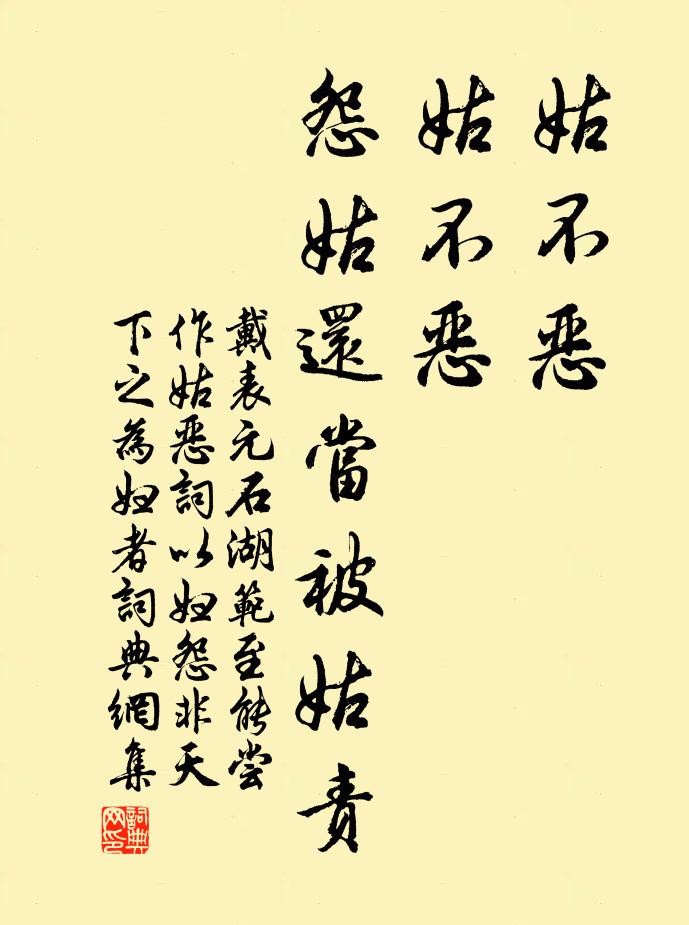 姑不恶
姑不恶
怨姑還當被姑責
戴表元石湖範至能尝
作姑恶詞以妇怨非天
下之為妇者詞典網集
詞典
网印